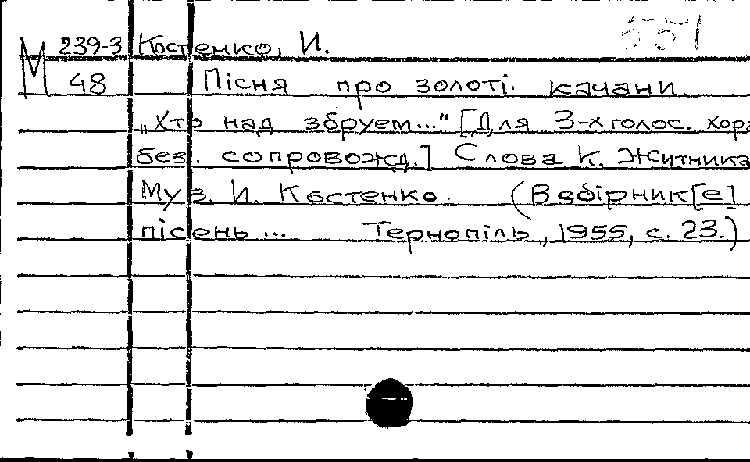 М 239-3 Костенко, И. 551
48 Пісня про золоті качани
„Хто над збруем..." [Для 3-х голос. хора
без. сопровожд.] Слова К. Житника
Муз. И. Костенко. (В збірник[е]
пісень... Тернопіль, 1955, с. 23.)